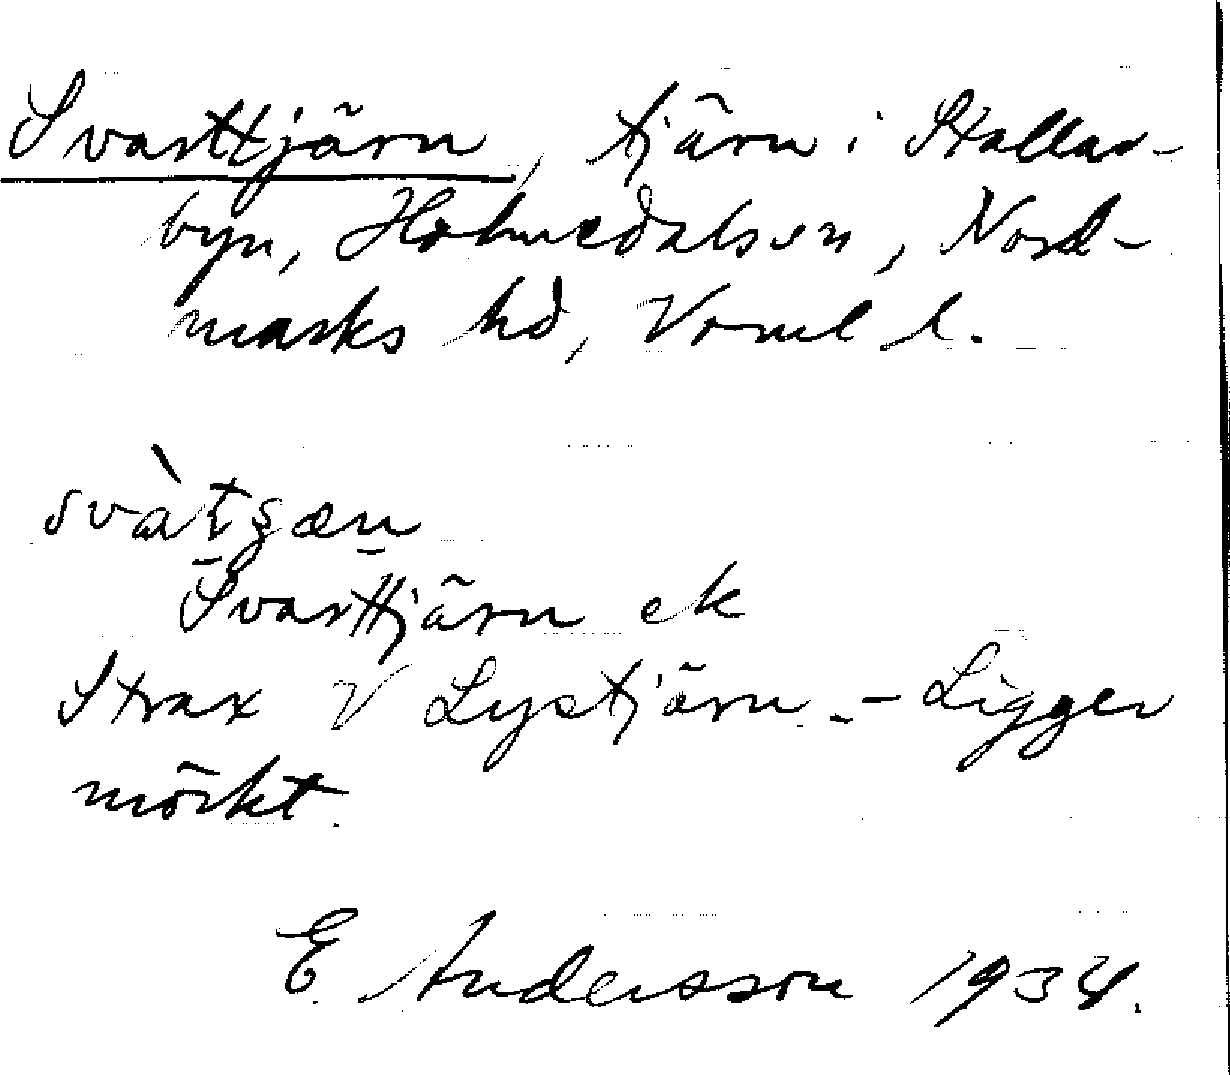 Svarttjärn, tjärn i Stallar-
byn, Holmedals sn, Nord-
marks hd, Vrml l.
svàtʂæɳ
Svarttjärn ek
Strax V Lystjärn. - Ligger
mörkt.
E. Andersson 1934.